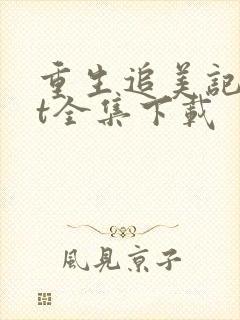 重生追美記
t全集下載
風見京子